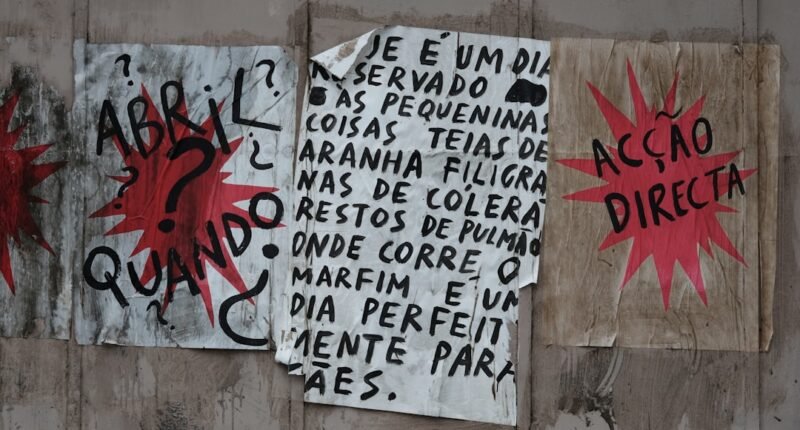 ?
?
ABRIL
?
¿
?
QUANDO
?
¿
JE É UM DIA
RESERVADO
ÀS PEQUENINAS
COISAS TEIAS DE
ARANHA FILIGRA
NAS DE CÓLERA
RESTOS DE PULMÃO
ONDE CORRE O
MARFIM É UM
DIA PERFEIT
MENTE PARA
ÃES.
ACÇÃO
DIRECTA